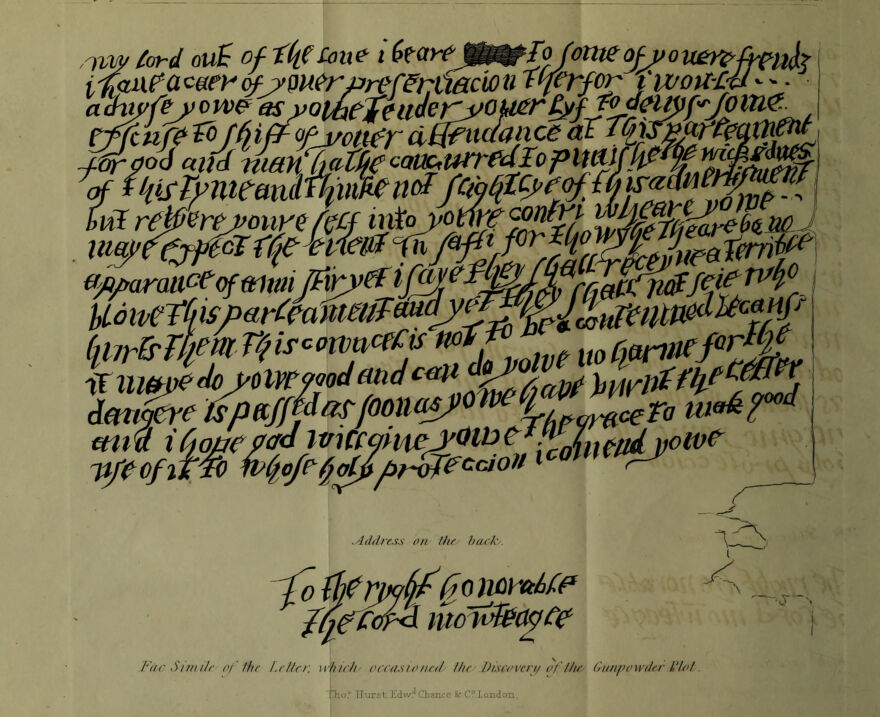 my lord out of the loue i beare to some of youere frends
i haue a caer of youer preseruacion therfor i would
aduyse yowe as yowe tender youer lyf to deuys some
exscuse to shift of youer attendance at this parleament
for god and man hathe concurred to punishe the wickednes
of this tyme and thinke not slightlye of this aduertisment
but retyere youre self into youre contri wheare yowe
maye expect the euent in safti for thowghe theare be no
apparance of anni stir yet i saye they shall receyue a terrible
blowe this parleament and yet they shall not seie who
hurts them this cowncel is not to be a contemned because
it maye do yowe good and can do yowe no harme for the
dangere is passed as soon as yowe have burnt the letter
and i hope god will giue yowe the grace to mak good
use of it to whose holy proteccion i comend yowe
Address on the back.
To the ryght honorable
the lord mowteagle
Fac Simile of the Letter; which occasioned the Discovery of the Gunpowder Plot.
Tho.s Hurst. Edw.d Chance & C.o London.